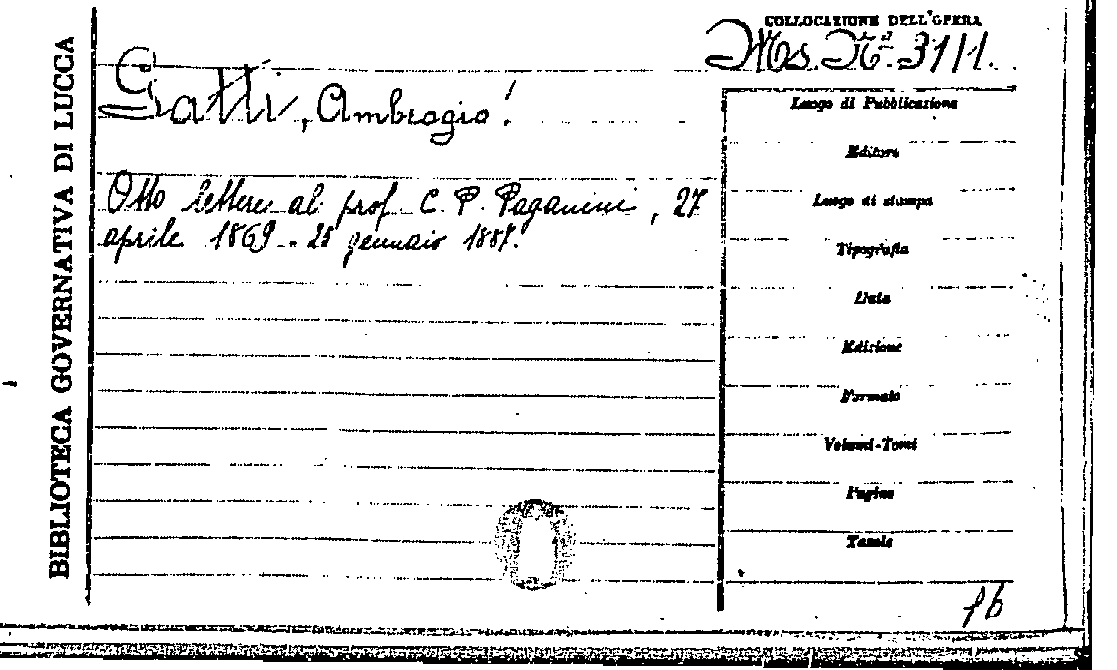 BIBLIOTECA GOVERNATIVA DI LUCCA
COLLOCAZIONE DELL'OPERA
Ms. N.º 3111.
Gatti, Ambrogio.
Otto lettere al prof. C. P. Paganini, 27
aprile 1869 - 25 gennaio 1887.
Luogo di Pubblicazione
Editore
Luogo di stampa
Tipografia
Data
Edizione
Formato
Volumi-Tomi
Pagine
Tavole